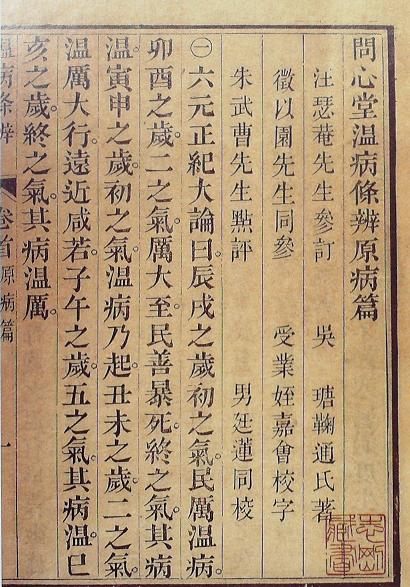 問心堂温病條辨原病篇
汪瑟菴先生參訂 吳 瑭鞠通氏著
徵以園先生同參 受業姪嘉會校字
朱武曹先生點評 男廷蓮同校
㊀六元正紀大論曰。辰戌之歲。初之氣。民厲温病。
卯酉之歲。二之氣。厲大至。民善暴死。終之氣。其病
温。寅申之歲。初之氣。温病乃起。丑未之歲。二之氣。
温厲大行。遠近咸若。子午之歲。五之氣。其病温。巳
亥之歲。終之氣。其病温厲。
温病條辨 卷首 原病篇 一